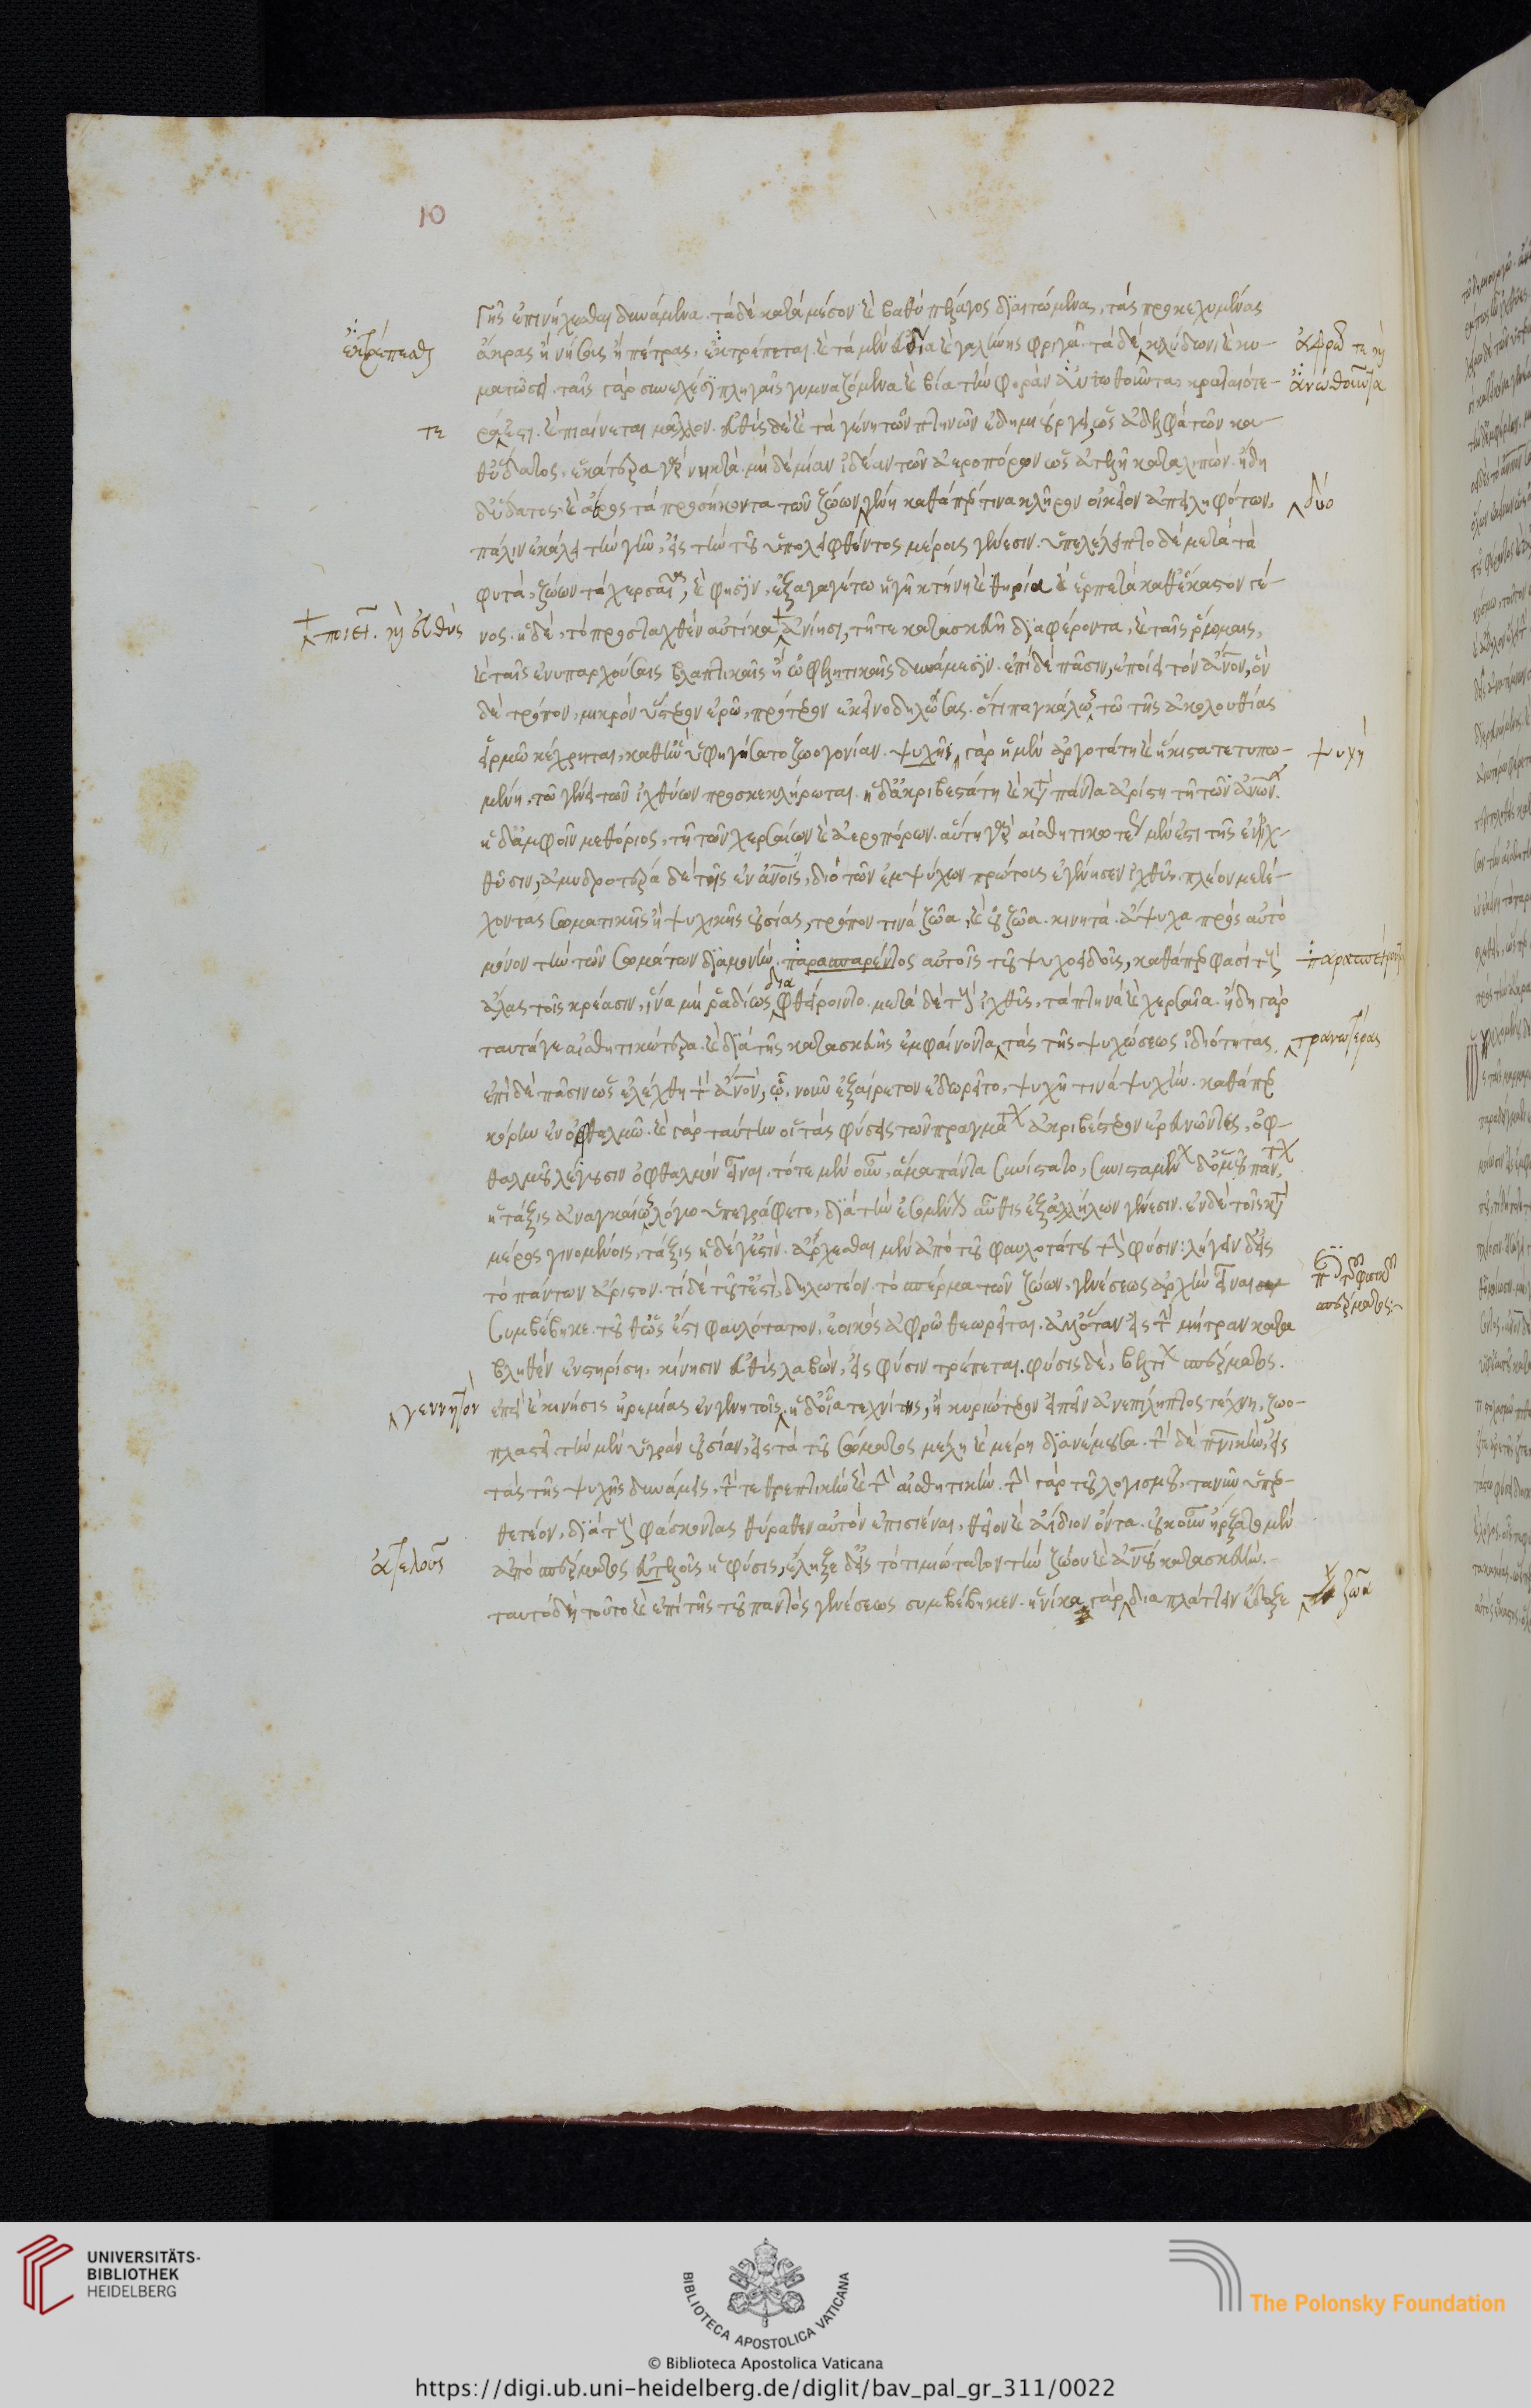 10
γῆς ἐπινήχεσθαι δυνάμενα. τὰ δὲ κατὰ μέσον καὶ βαθὺ πέλαγος διαιτώμενα, τὰς προκεχυμένας
ἄκρας ἢ νήσους ἢ πέτρας, ἐκτρέπεται. καὶ τὰ μὲν εὐδία καὶ γαλήνης φριγᾶ. τὰ δὲ κλύδωνι καὶ κυ-
ἐκτρέπεσθαι
ματώσει. ταῖς γὰρ συνεχέσι πληγαῖς γυμναζόμενα καὶ βία τὴν φορὰν ἀντωθοῦντα, κραταιότε-
ἀνωθοῦντα
ρά ἐστι. καὶ πιαίνεται μᾶλλον. εὐθὺς δὲ καὶ τὰ γένη τῶν πτηνῶν ἐδημιούργει, ὡς ἀδελφὰ τῶν κα-
τε
θ' ὕδατος, ἑκάτερα γὰρ νηκτὰ. μηδεμίαν ἰδέαν τῶν ἀεροπόρων ὡς ἀτελῆ καταλιπών. ἤδη
δ' ὕδατος καὶ ἀέρος τὰ προσήκοντα τῶν ζώων γένη καθάπερ τινα κλῆρον οἰκεῖον ἀπειληφότων,
δύο
πάλιν ἐκάλει τὴν γῆν, εἰς τὴν τοῦ ὑπολειφθέντος μέρους γένεσιν. ὑπελέλειπτο δὲ μετὰ τὰ
φυτὰ, ζώων τὰ χερσαῖα, καὶ φησὶν, ἐξαγαγέτω ἡ γῆ κτήνη καὶ θηρία καὶ ἑρπετὰ καθ' ἕκαστον γέ-
νος. ἡ δὲ, τὸ προσταχθὲν αὐτίκα ἀνίησι, τῆ τε κατασκευῆ διαφέροντα, καὶ ταῖς ῥώμαις,
καὶ ταῖς ἐνυπαρχούσαις βλαπτικαῖς ἢ ὠφελητικαῖς δυνάμεσιν. ἐπὶ δὲ πᾶσιν, ἐποίει τὸν ἄνον, ὃν
δὲ τρόπον, μικρὸν ὕστερον ἐρῶ, πρότερον ἐκεῖνο δηλώσας. ὅτι παγκάλως τῶ τῆς ἀκολουθίας
εἱρμῶ κέχρηται, καθ' ἣν ὑφηγήσατο ζωογονίαν. ψυχῆς γὰρ ἡ μὲν ἀργοτάτη καὶ ἥκιστα τετυπω-
ψυχή
μένη, τῶ γένει τῶν ἰχθύων προσκεκλήρωται. ἡ δ' ἀκριβεστάτη καὶ κατὰ πάντα ἀρίστη τῆ τῶν ἀνων.
ἡ δ' ἀμφοῖν μεθόριος, τῆ τῶν χερσαίων καὶ ἀεροπόρων. αὕτη γὰρ αἰσθητικωτέρα μέν ἐστι τῆς ἐν ἰχ-
θύσιν, ἀμυδροτέρα δὲ τῆς ἐν ἀνοις, διὸ τῶν ἐμψύχων πρώτους ἐγέννησεν ἰχθῦς. πλέον μετέ-
χοντας σωματικῆς ἢ ψυχικῆς οὐσίας, τρόπον τινὰ ζῶα, καὶ οὐ ζῶα. κινητὰ. ἄψυχα πρὸς αὐτὸ
μόνον τὴν τῶν σωμάτων διαμονὴν. παρασπαρέντος αὐτοῖς τοῦ ψυχοειδοῦς, καθάπερ φασὶ τοὺς
ἅλας τοῖς κρέασιν, ἵνα μὴ ῥαδίως φθείροιντο. μετὰ δὲ τοὺς ἰχθῦς, τὰ πτηνὰ καὶ χερσαῖα. ἤδη γὰρ
δια
ταυτά γε αἰσθητικώτερα. καὶ διὰ τῆς κατασκευῆς ἐμφαίνοντα τὰς τῆς ψυχώσεως ἰδιότητας.
τρανοτέρας
ἐπὶ δὲ πᾶσιν ὡς ἐλέχθη τὸν ἄνον, ὧ, νοῦν ἐξαίρετον ἐδωρεῖτο, ψυχῆ τινα ψυχὴν. καθάπερ
κόρην ἐν ὀφθαλμῶ. καὶ γὰρ ταύτην οἱ τὰς φύσεις τῶν πραγμάτων ἀκριβέστερον ἐρευνῶντες, ὀφ-
θαλμοῦ λέγουσιν ὀφθαλμόν εἶναι, τότε μὲν οὖν, ἅμα πάντα συνίστατο, συνισταμένων δ' ὁμοῦ πάντων,
ἡ τάξις ἀναγκαίως λόγω ὑπεγράφετο, διὰ τὴν ἐσομένην αὖθις ἐξ ἀλλήλων γένεσιν. ἐν δὲ τοῖς κατὰ
μέρος γινομένοις, τάξις ἥδε γ' ἐστὶν. ἄρχεσθαι μὲν ἀπὸ τοῦ φαυλοτάτου τὴν φύσιν· λήγειν δ' εἰς
τὸ πάντων ἄριστον. τί δὲ τοῦτ' ἐστὶ, δηλωτέον. τὸ σπέρμα τῶν ζώων, γενέσεως ἀρχὴν εἶναι
συμβέβηκε. τοῦθ' ὡς ἐστὶ φαυλότατον, ἐοικὸς ἀφρῶ θεωρεῖται. ἀλλ' ὅταν εἰς τὴν μήτραν κατα
σπέρματος
βληθὲν ἐνστηρίση, κίνησιν εὐθὺς λαβὼν, εἰς φύσιν τρέπεται. φύσις δὲ, βελτίων σπέρματος.
ἐπεὶ καὶ κινήσις ἠρεμίας ἐν γενητοῖς, ἡ δ' οἷα τεχνίτης, ἢ κυριώτερον εἰπεῖν ἀνεπίληπτος τέχνη, ζωο-
γεννητὸν
πλαστεῖ τὴν μὲν ὑγρὰν οὐσίαν, εἰς τὰ τοῦ σώματος μέλη καὶ μέρη διανέμουσα. τὴν δὲ πνικὴν, εἰς
τὰς τῆς ψυχῆς δυνάμεις, τήν τε θρεπτικὴν καὶ τὴν αἰσθητικήν. τὴν γὰρ τοῦ λογισμοῦ, τανῦν ὑπερ-
θετέον, διὰ τοὺς φάσκοντας θύραθεν αὐτὸν ἐπισιέναι, θεῖον καὶ ἀίδιον ὄντα. οὐκοῦν ἤρξατο μὲν
ἀπὸ σπέρματος εὐτελοῦς ἡ φύσις, ἔληξε δ' εἰς τὸ τιμιώτατον τὴν ζώου καὶ ἀνου κατασκευὴν.
ἀτελοῦς
ταυτὸ δὴ τοῦτο καὶ ἐπὶ τῆς τοῦ παντὸς γενέσεως συμβέβηκεν. ἡνίκα γὰρ διαπλάττειν ἔδοξε
ζῶα
UNIVERSITÄTS-
BIBLIOTHEK
HEIDELBERG
BIBLIOTECA APOSTOLICA VATICANA
The Polonsky Foundation
© Biblioteca Apostolica Vaticana
https://digi.ub.uni-heidelberg.de/diglit/bav_pal_gr_311/0022